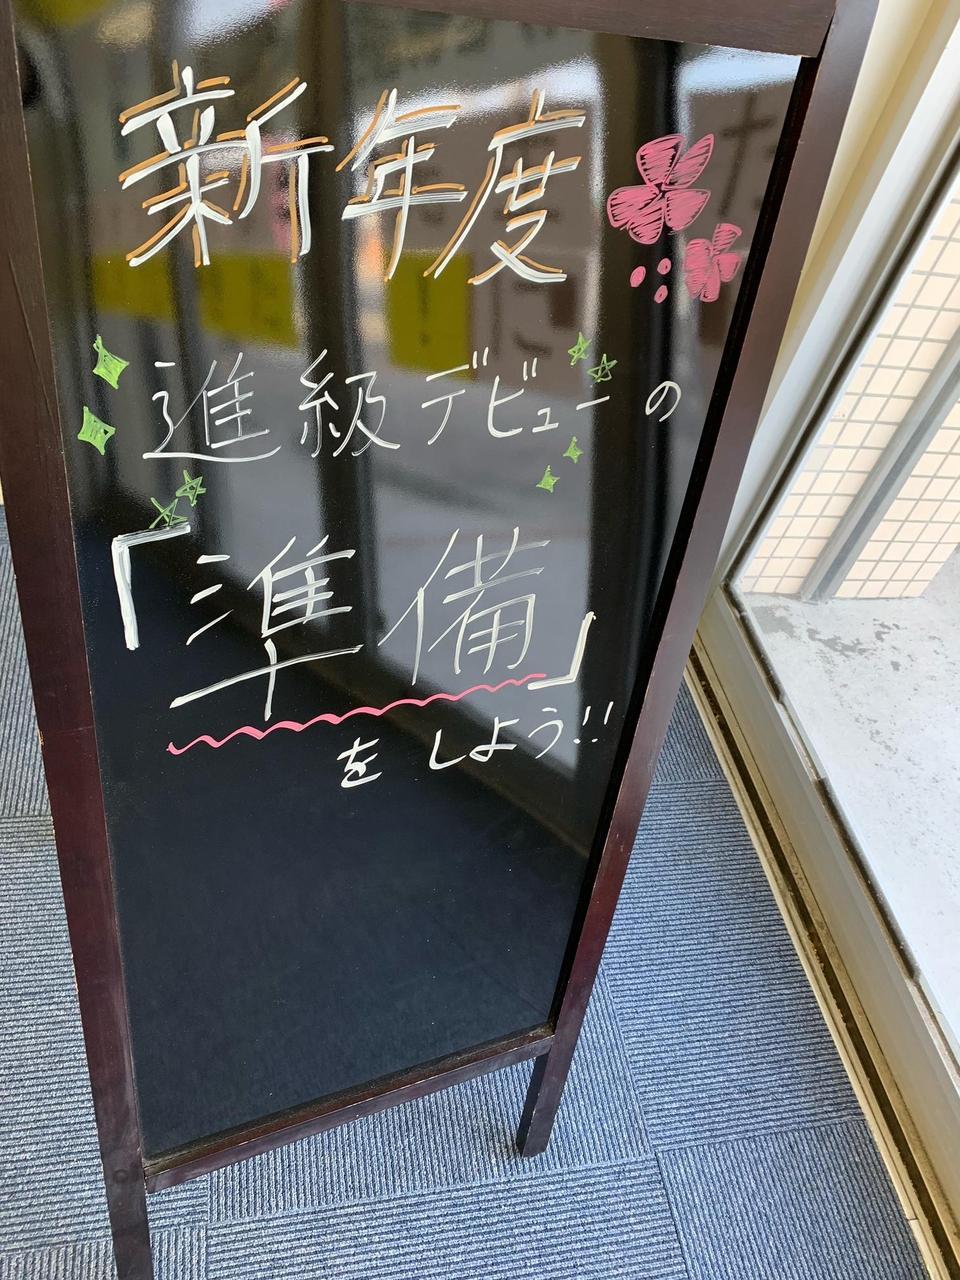 新年度
進級デビューの
「準備」
をしよう!!